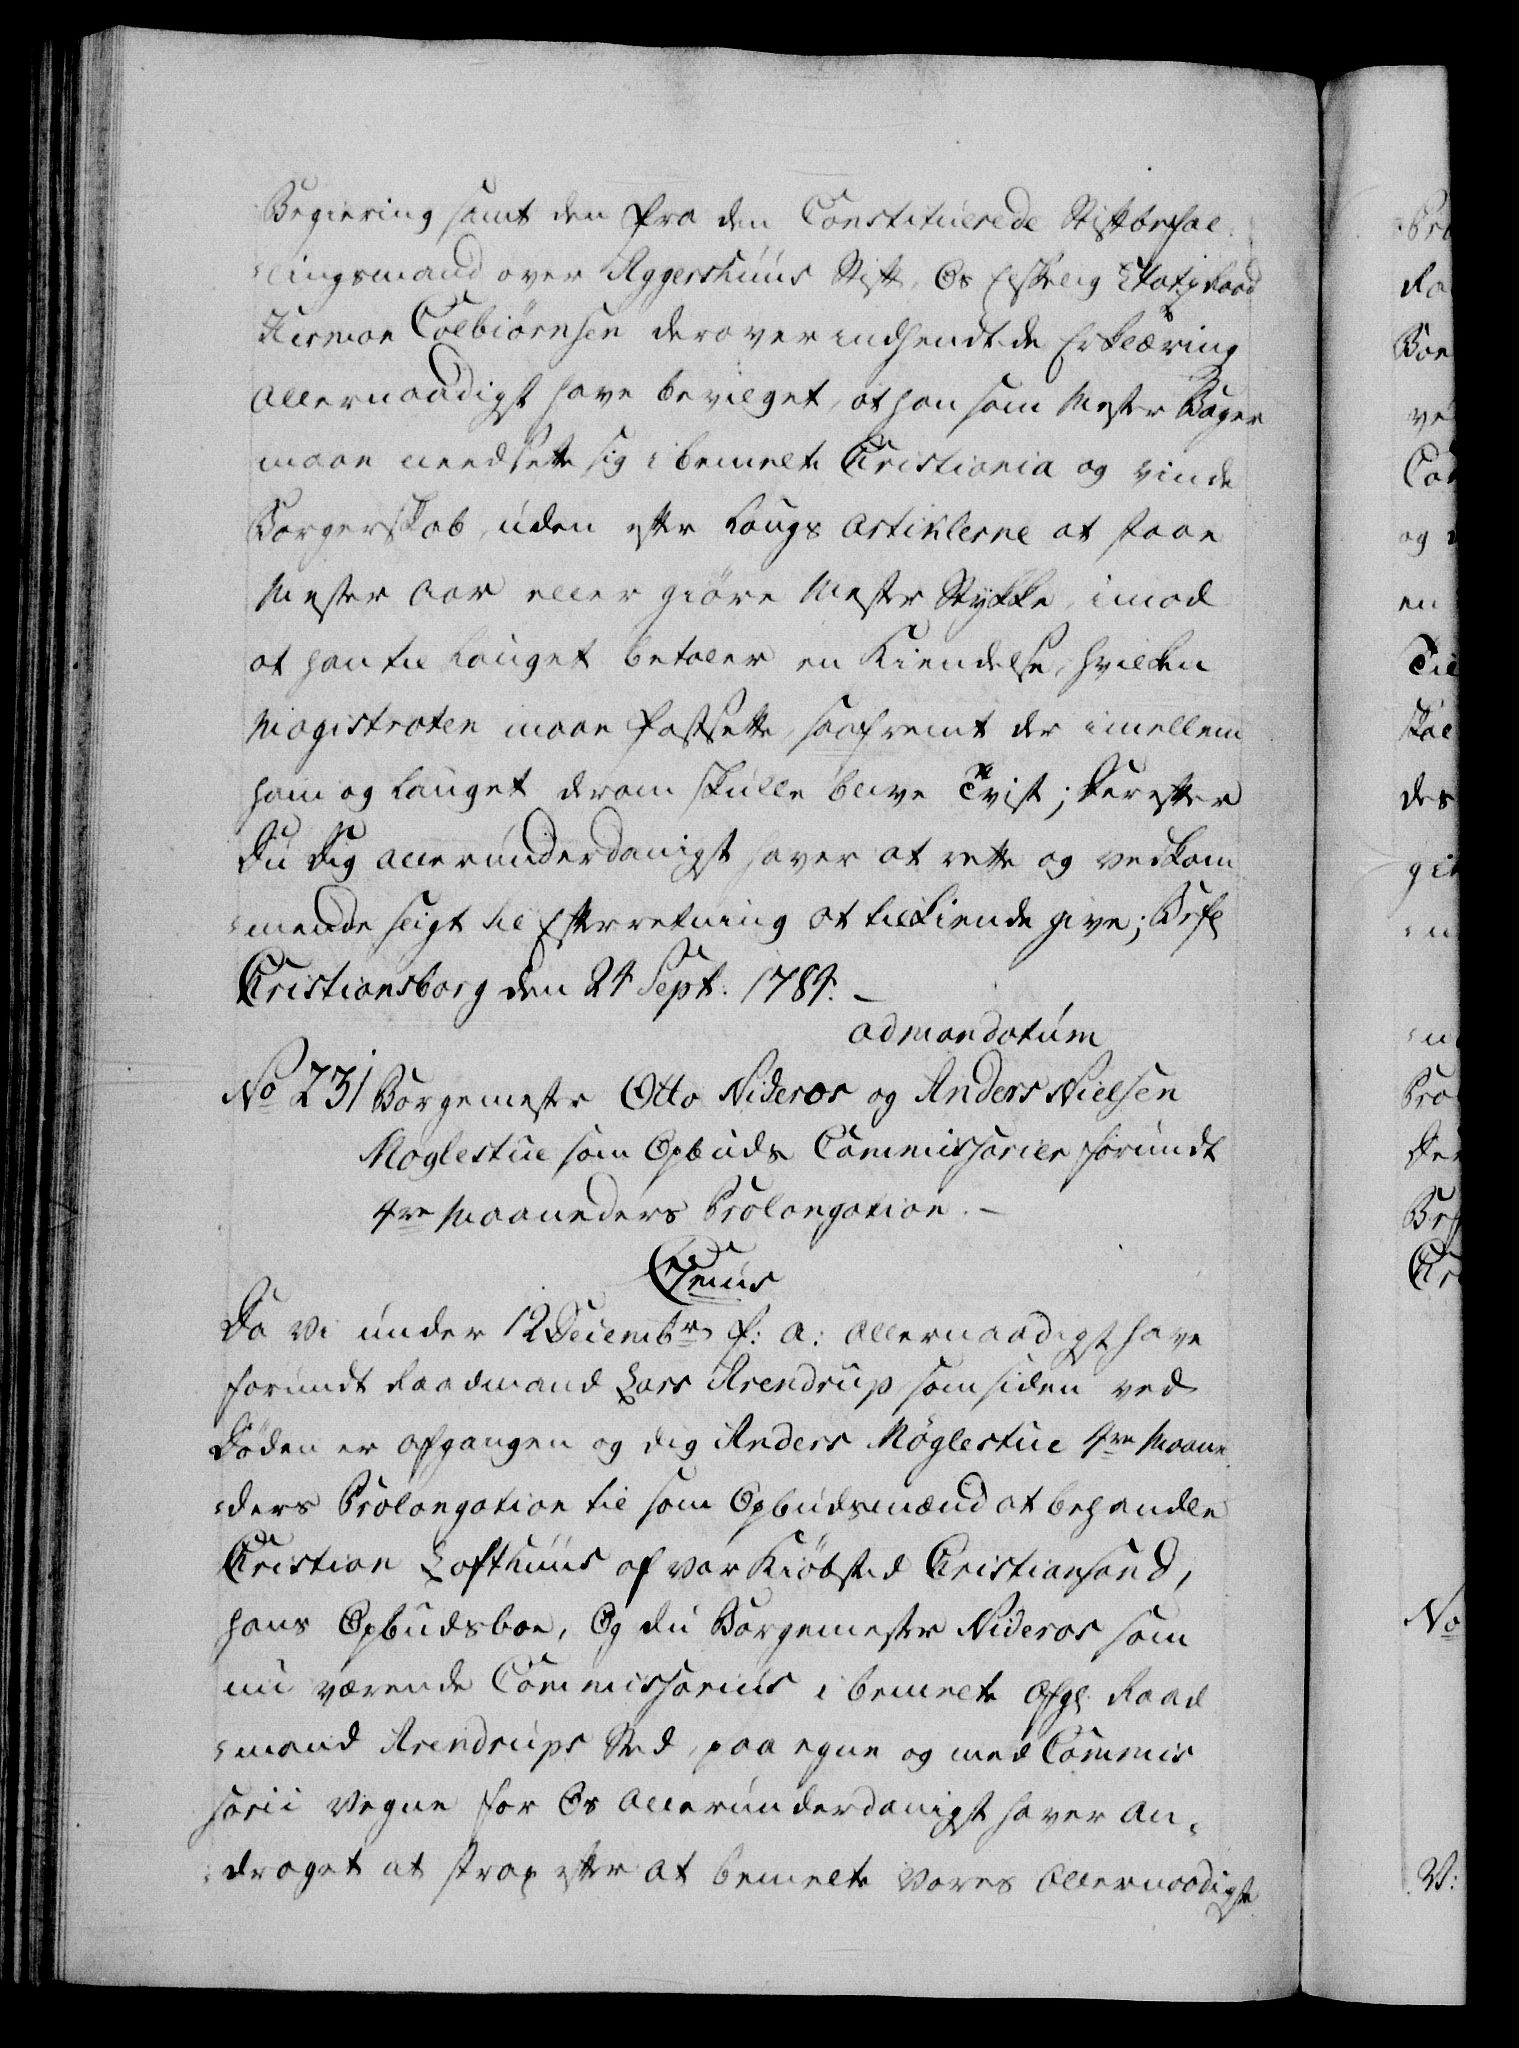 Begiering samt den fra den Constituerede Stiftbefal-
-lingsmand over Aggershuus Stift, Os Elskelig Etatzraad
Herman Colbiørnsen derover indsendte Erklæring
allernaadigst have bevilget, at han som Mester Bager
maae needsette sig i bemelte Christiania og vinde
Borgerskab, uden efter Laugs Artiklerne at staae
Mester Aar eller giøre Mester Stykke, imod
at han til Lauget betaler en Kiendelse, hvilken
Magistraten maae fastsette, saafremt der imellem
ham og Lauget derom skulle blive Tvist; Derefter
Du Dig allerunderdanigst haver at rette og vedkom-
-mende sligt til Efterretning at tilkiende give; Befl
Christiansborg den 24 Sept. 1784. –
ad mandatum
No 231 Borgemester Otto Nideros og Anders Nielsen
Møglestue som Opbuds Commissarier forundt
4re Maaneders Prolongation. –
C7mus
Da Vi under 12 Decembr f: a: allernaadigst have
forundt Raadmand Lars Arendrup, som siden ved
Døden er afgangen og dig Anders Møglestue 4re Maane
-ders Prolongation til som Opbudsmænd at behandle
Christian Lofthuus af vor Kiøbsted Christiansand,
hans Opbudsboe, Og du Borgemester Nideros som
nu værende Commissarius i bemelte Afgl. Raad
-mand Arendrups Sted, paa egne og med Commis
sarii Vegne for Os allerunderdanigst haver an-
-draget at strax efter at bemelte Vores Allernaadigste